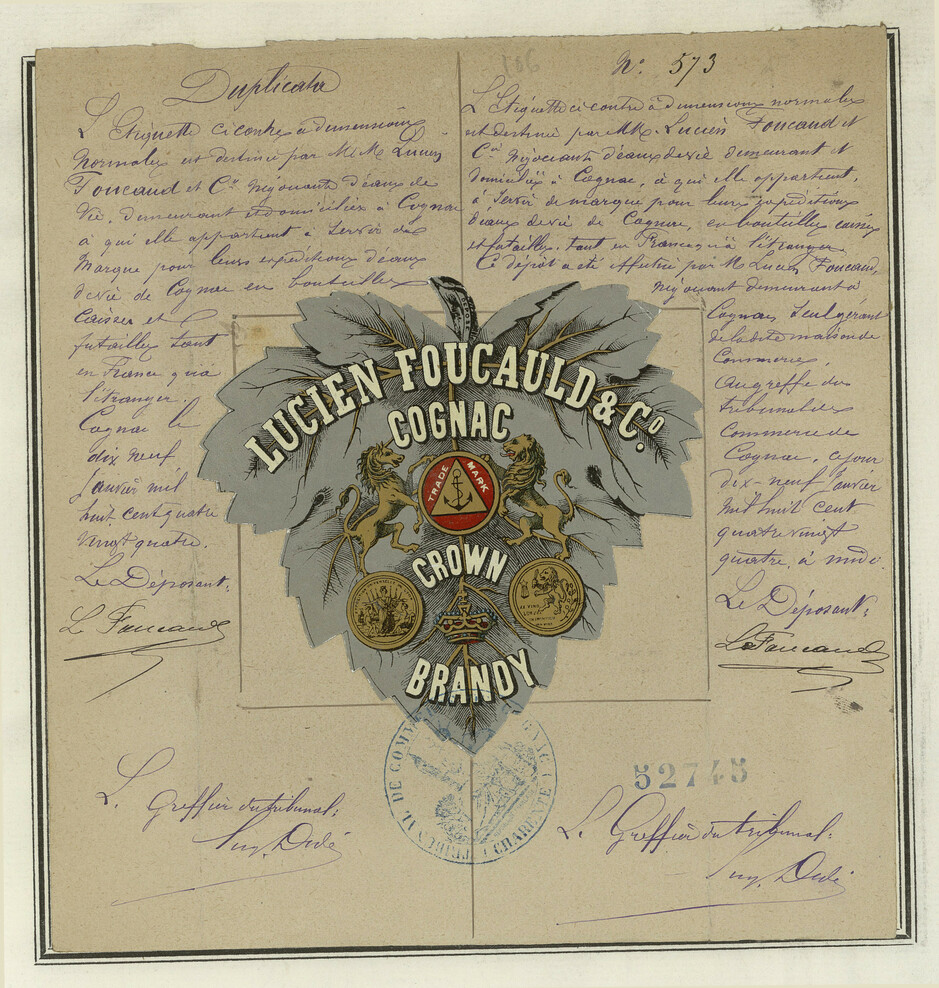 Duplicata
L'Etiquette ci contre à dimensions
normales est destinée par M.M. Lucien
Foucaud et Cie Négociants d'eaux de
vie, demeurant et domiciliés à Cognac
à qui elle appartient à servir de
Marque pour leurs expéditions d'eaux
de vie de Cognac en bouteilles
Caisses et
futailles tant
en France qu'à
l'étranger.
Cognac le
dix neuf
Janvier mil
huit cent quatre
vingt quatre.
Le Déposant:
L Foucaud
Le Greffier du tribunal:
N° 573
L'Etiquette ci contre à dimensions normales
est destinée par MM. Lucien Foucaud et
Cie Négociants d'eaux de vie demeurant et
domiciliés à Cognac, à qui elle appartient,
à servir de marque pour leurs expéditions
d'eaux de vie de Cognac, en bouteilles caisses
et futailles, tant en France qu'à l'étranger.
Ce dépôt a été effectué par M Lucien Foucaud,
négociant demeurant à
Cognac, seul gérant
de la dite maison de
Commerce,
au greffe du
tribunal de
Commerce de
Cognac, ce jour
dix-neuf Janvier
mil huit cent
quatre vingt
quatre, à midi.
Le Déposant:
L Foucaud
52745
Le Greffier du tribunal:
LUCIEN FOUCAULD & Co.
COGNAC
TRADE MARK
CROWN
BRANDY